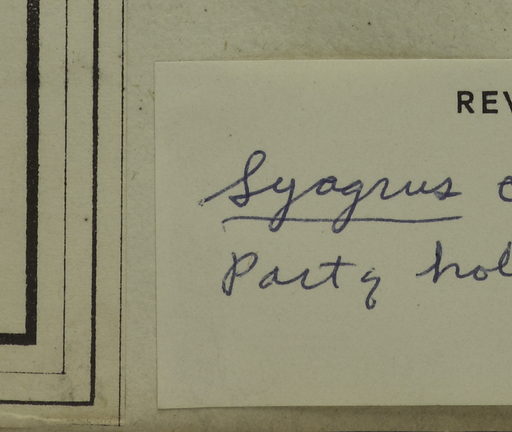 REV
Syagrus c
Part of hol